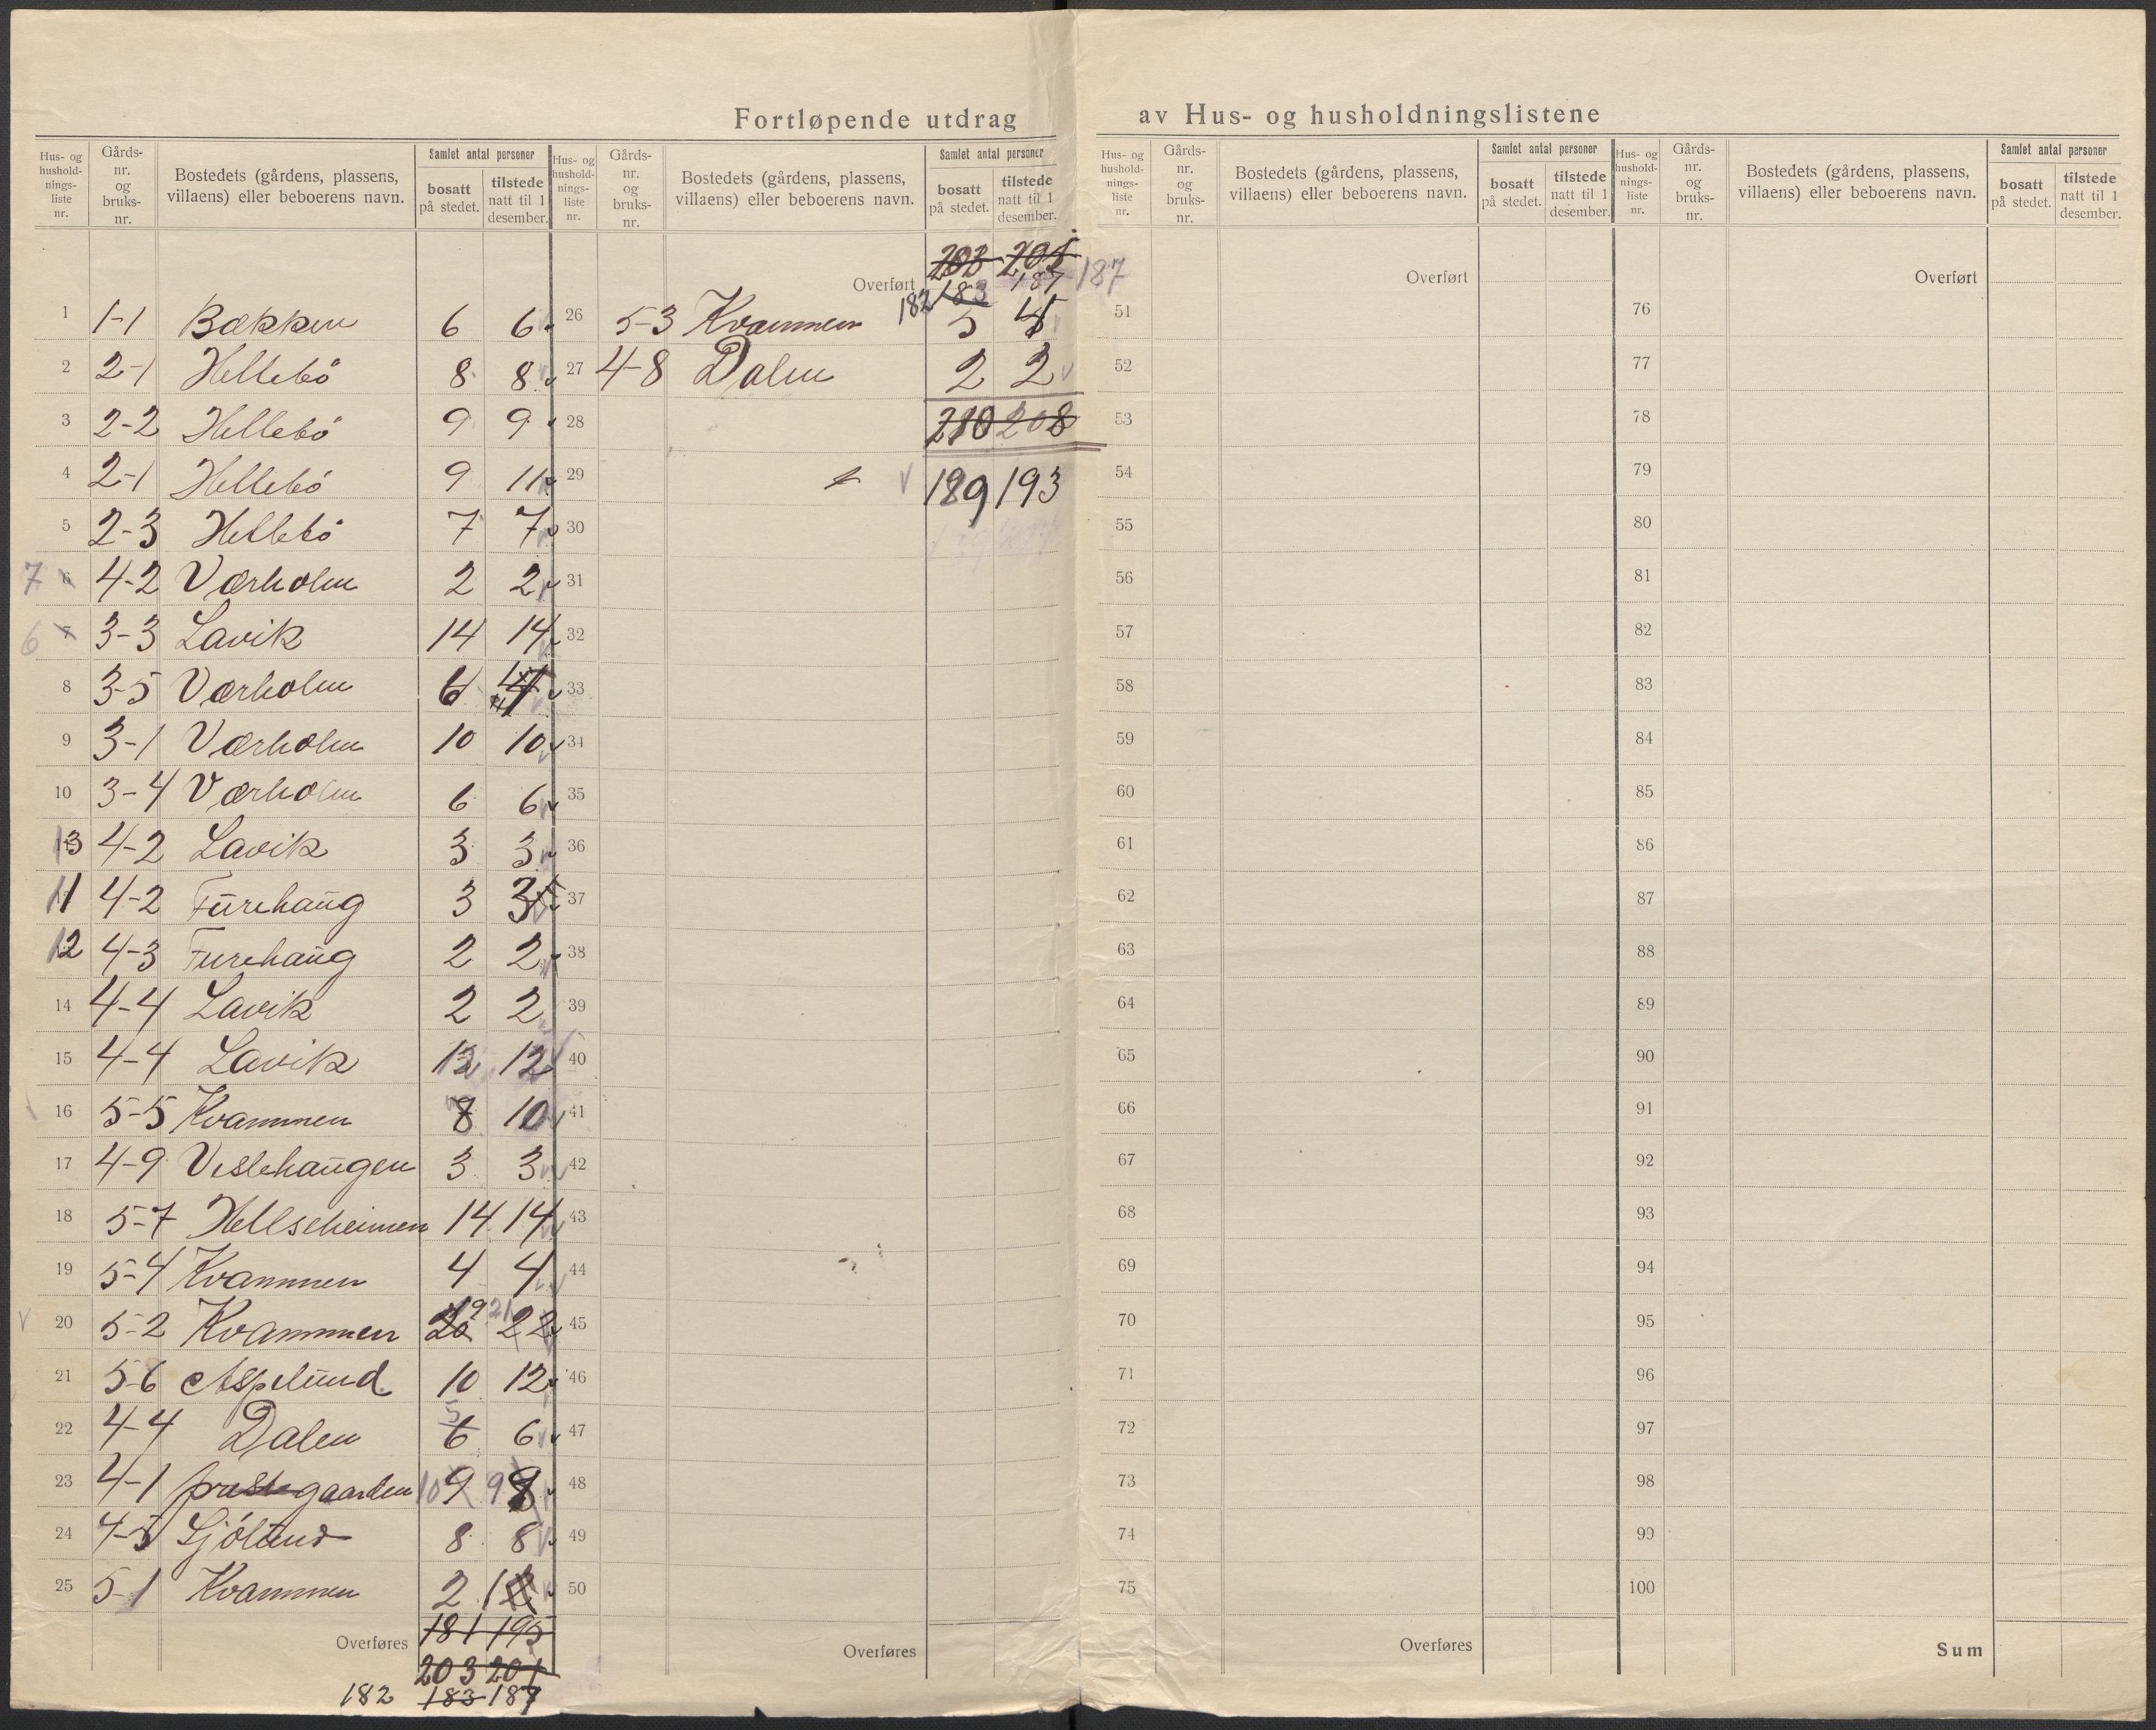 Fortløpende utdrag av Hus- og husholdningslistene
Hus- og husholdnings-liste nr. Gårds-nr. og bruks-nr. Bostedets (gårdens, plassens, villaens) eller beboerens navn. Samlet antal personer bosatt på stedet. tilstede natt til 1 desember.
1 1-1 Bakken 6 6
2 2-1 Hellebö 8 8
3 2-2 Hellebö 9 9
4 2-1 Hellebö 9 11
5 2-3 Hellebö 7 7
7 6 4-2 Værholm 2 2
6 7 3-3 Lavik 14 14
8 3-5 Værholm 6 4
9 3-1 Værholm 10 10
10 3-4 Værholm 6 6
13 4-2 Lavik 3 3
11 4-2 Furehaug 3 3
12 4-3 Furehaug 2 2
14 4-4 Lavik 2 2
15 4-4 Lavik 12 12
16 5-5 Kvammen 8 10
17 4-9 Veslehaugen 3 3
18 5-7 Hellseheimen 14 14
19 5-4 Kvammen 4 4
20 5-2 Kvammen 20 19 21 22
21 5-6 Aspelund 10 12
22 4-4 Dalen 5 6 6
23 4-1 præstegaarden 10 9 9 8
24 4-5 Sjölund 8 8
25 5-1 Kvammen 2 1
Overføres 181 195
203 201
182 183 187
Hus- og husholdnings-liste nr. Gårds-nr. og bruks-nr. Bostedets (gårdens, plassens, villaens) eller beboerens navn. Samlet antal personer bosatt på stedet. tilstede natt til 1 desember.
203 201
Overført 182 183 187 187
26 5-3 Kvammen 5 4
27 4-8 Dalen 2 2
28 210 208
29 189 193
30
31
32
33
34
35
36
37
38
39
40
41
42
43
44
45
46
47
48
49
50
Overføres
Hus- og husholdnings-liste nr. Gårds-nr. og bruks-nr. Bostedets (gårdens, plassens, villaens) eller beboerens navn. Samlet antal personer bosatt på stedet. tilstede natt til 1 desember.
Overført
51
52
53
54
55
56
57
58
59
60
61
62
63
64
65
66
67
68
69
70
71
72
73
74
75
Overføres
Hus- og husholdnings-liste nr. Gårds-nr. og bruks-nr. Bostedets (gårdens, plassens, villaens) eller beboerens navn. Samlet antal personer bosatt på stedet. tilstede natt til 1 desember.
Overført
76
77
78
79
80
81
82
83
84
85
86
87
88
89
90
91
92
93
94
95
96
97
98
99
100
Sum